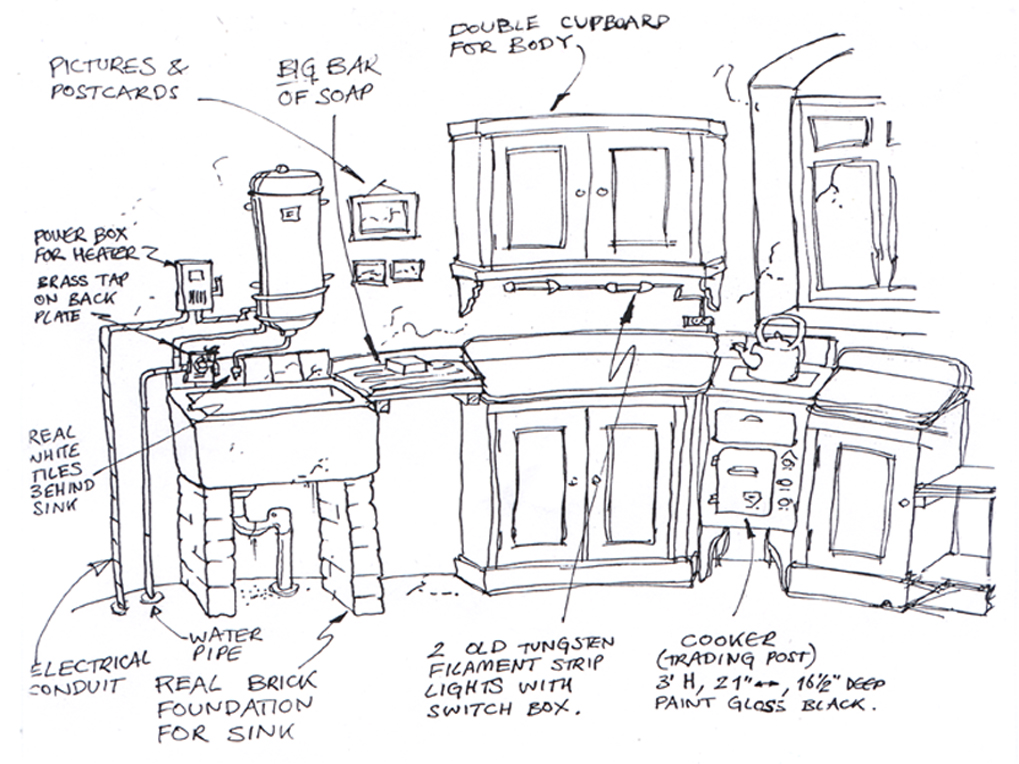 DOUBLE CUPBOARD
FOR BODY
PICTURES &
POSTCARDS
BIG BAR
OF SOAP
POWER BOX
FOR HEATER
BRASS TAP
ON BACK
PLATE
REAL
WHITE
TILES
BEHIND
SINK
ELECTRICAL
CONDUIT
WATER
PIPE
REAL BRICK
FOUNDATION
FOR SINK
2 OLD TUNGSTEN
FILAMENT STRIP
LIGHTS WITH
SWITCH BOX.
COOKER
(TRADING POST)
3' H, 21" ↔, 16½" DEEP
PAINT GLOSS BLACK.